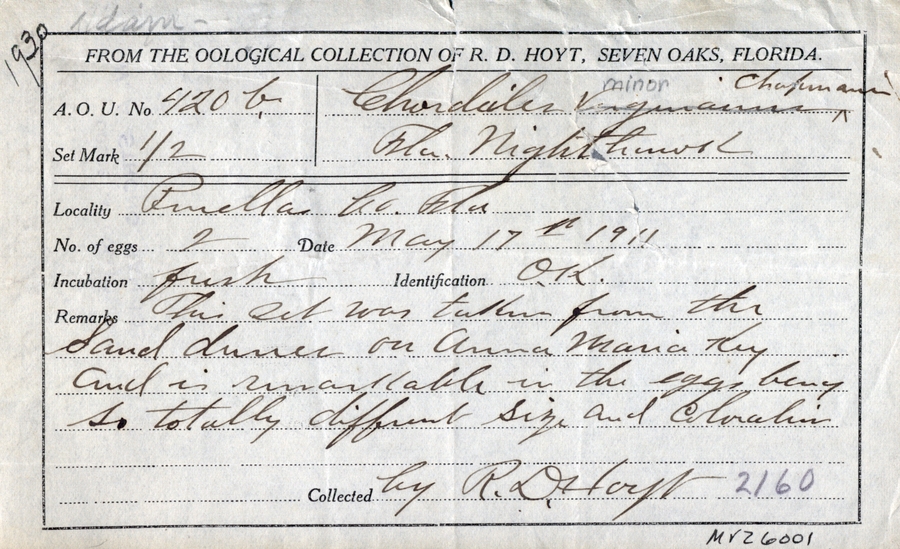 Adam-
1930
FROM THE OOLOGICAL COLLECTION OF R. D. HOYT, SEVEN OAKS, FLORIDA.
A. O. U. No. 420 b. Chordeiles virginianus minor Chapmanii
Set Mark 1/2 Fla. Nighthawk
Locality Pinellas Co. Fla
No. of eggs 2 Date May 17th 1911
Incubation fresh Identification O.K.
Remarks This set was taken from the
Sand dunes on Anna Maria Key
and is remarkable in the eggs being
so totally different size and coloration
Collected by R. D. Hoyt 2160
MVZ6001